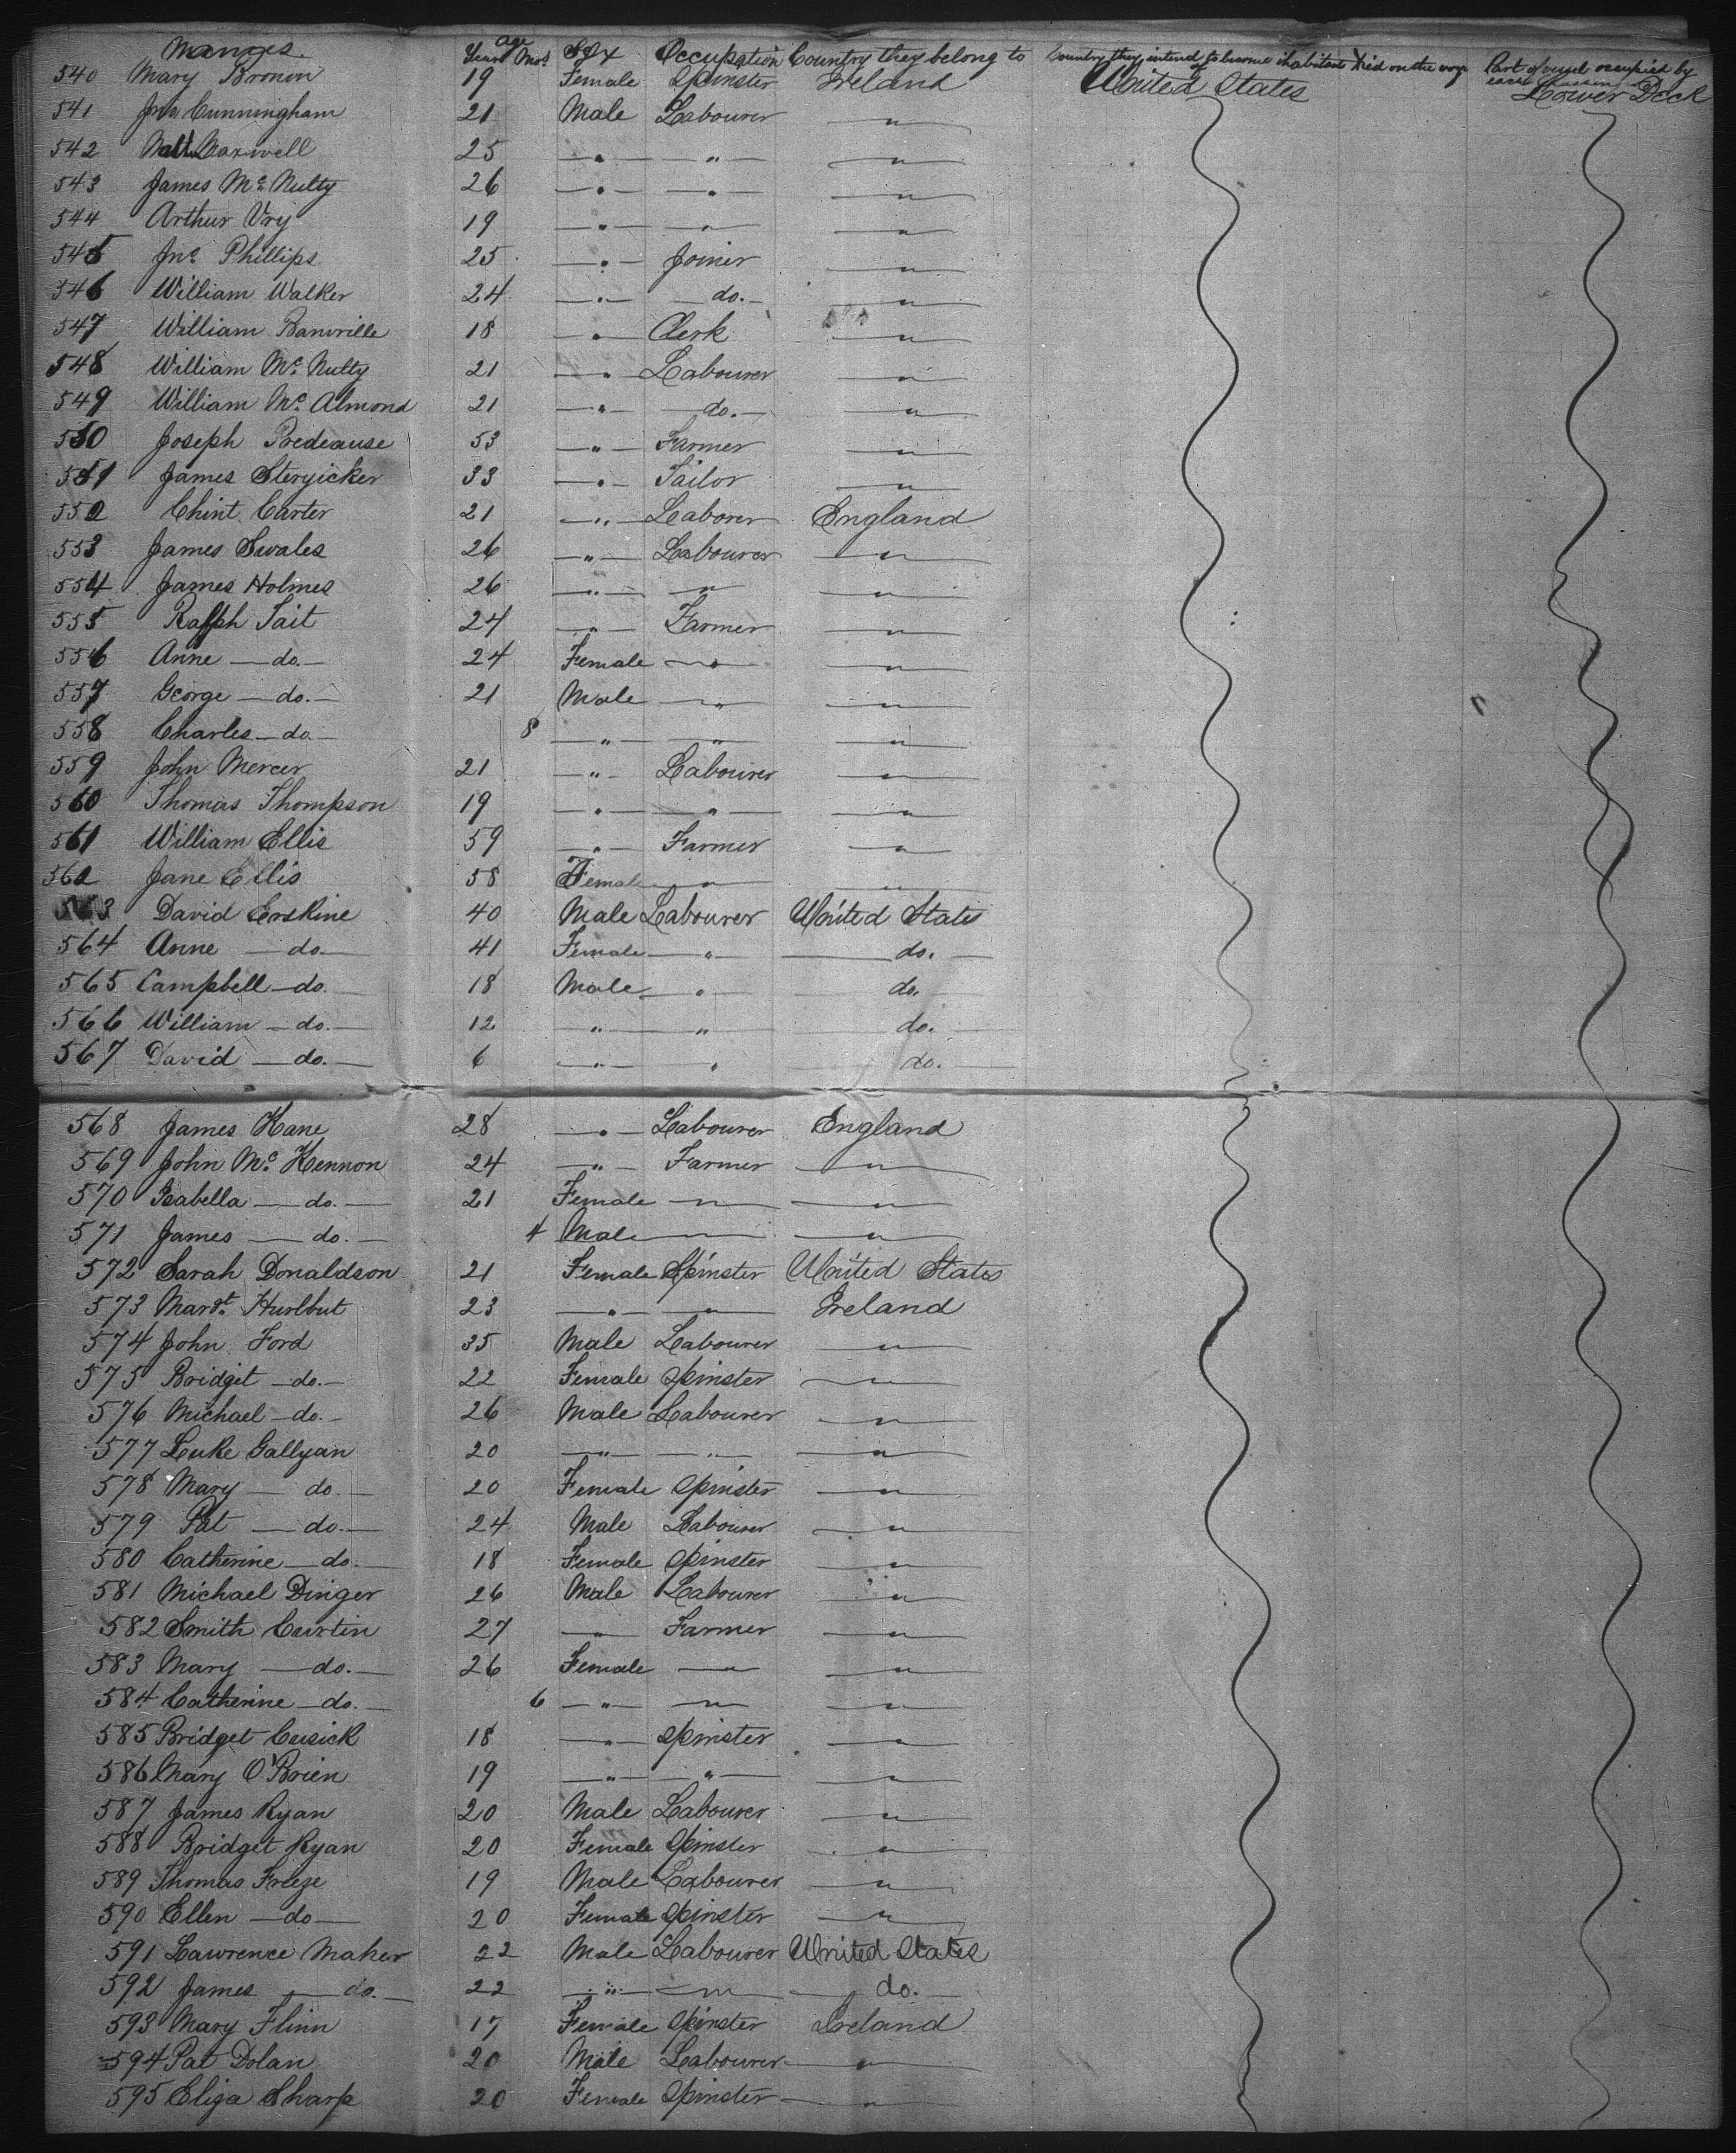 Names. Age Years Mos Sex Occupation Country they belong to Country they intend to become inhabitants of Died on the voyge Part of vessel occupied by each
540 Mary Bronon 19 Female Spinster Ireland United States Lower Deck
541 Jno. Cunningham 21 Male Labourer "
542 Maxwell 25 " " "
543 James Mc. Nulty 26 " " "
544 Arthur Ury 19 " " "
545 Jno. Phillips 25 " Joiner "
546 William Walker 24 " do. "
547 William Banville 18 " Clerk "
548 William Mc. Nulty 21 " Labourer "
549 William Mc. Almond 21 " do. "
550 Joseph Predeause 53 " Farmer "
551 James Steryicker 33 " Tailor "
552 Chint. Carter 21 " Laborer England
553 James Swales 26 " Labourer "
554 James Holmes 26 " " "
555 Ralph Tait 24 " Farmer "
556 Anne do. 24 Female " "
557 George do. 21 Male " "
558 Charles do. 8 " " "
559 John Mercer 21 " Labourer "
560 Thomas Thompson 19 " " "
561 William Ellis 59 " Farmer "
562 Jane Ellis 58 Female " "
563 David Erskine 40 Male Labourer United States
564 Anne do. 41 Female " do.
565 Campbell do. 18 Male " do.
566 William do. 12 " " do.
567 David do. 6 " " do.
568 James Kane 28 " Labourer England
569 John Mc. Kennon 24 " Farmer "
570 Isabella do. 21 Female " "
571 James do. 4 Male " "
572 Sarah Donaldson 21 Female Spinster United States
573 Margt. Hurlbut 23 " " Ireland
574 John Ford 35 Male Labourer "
575 Bridget do. 22 Female Spinster "
576 Michael do. 26 Male Labourer "
577 Luke Gallyan 20 " " "
578 Mary do. 20 Female Spinster "
579 Pat do. 24 Male Labourer "
580 Catherine do. 18 Female Spinster "
581 Michael Dinger 26 Male Labourer "
582 Smith Curtin 27 " Farmer "
583 Mary do. 26 Female " "
584 Catherine do. 6 " " "
585 Bridget Cusick 18 " Spinster "
586 Mary O'Brien 19 " " "
587 James Ryan 20 Male Labourer "
588 Bridget Ryan 20 Female Spinster "
589 Thomas Freeze 19 Male Labourer "
590 Ellen do 20 Female Spinster "
591 Lawrence Maher 22 Male Labourer United States
592 James do. 22 " " do.
593 Mary Flinn 17 Female Spinster Ireland
594 Pat Dolan 20 Male Labourer "
595 Eliza Sharp 20 Female Spinster "